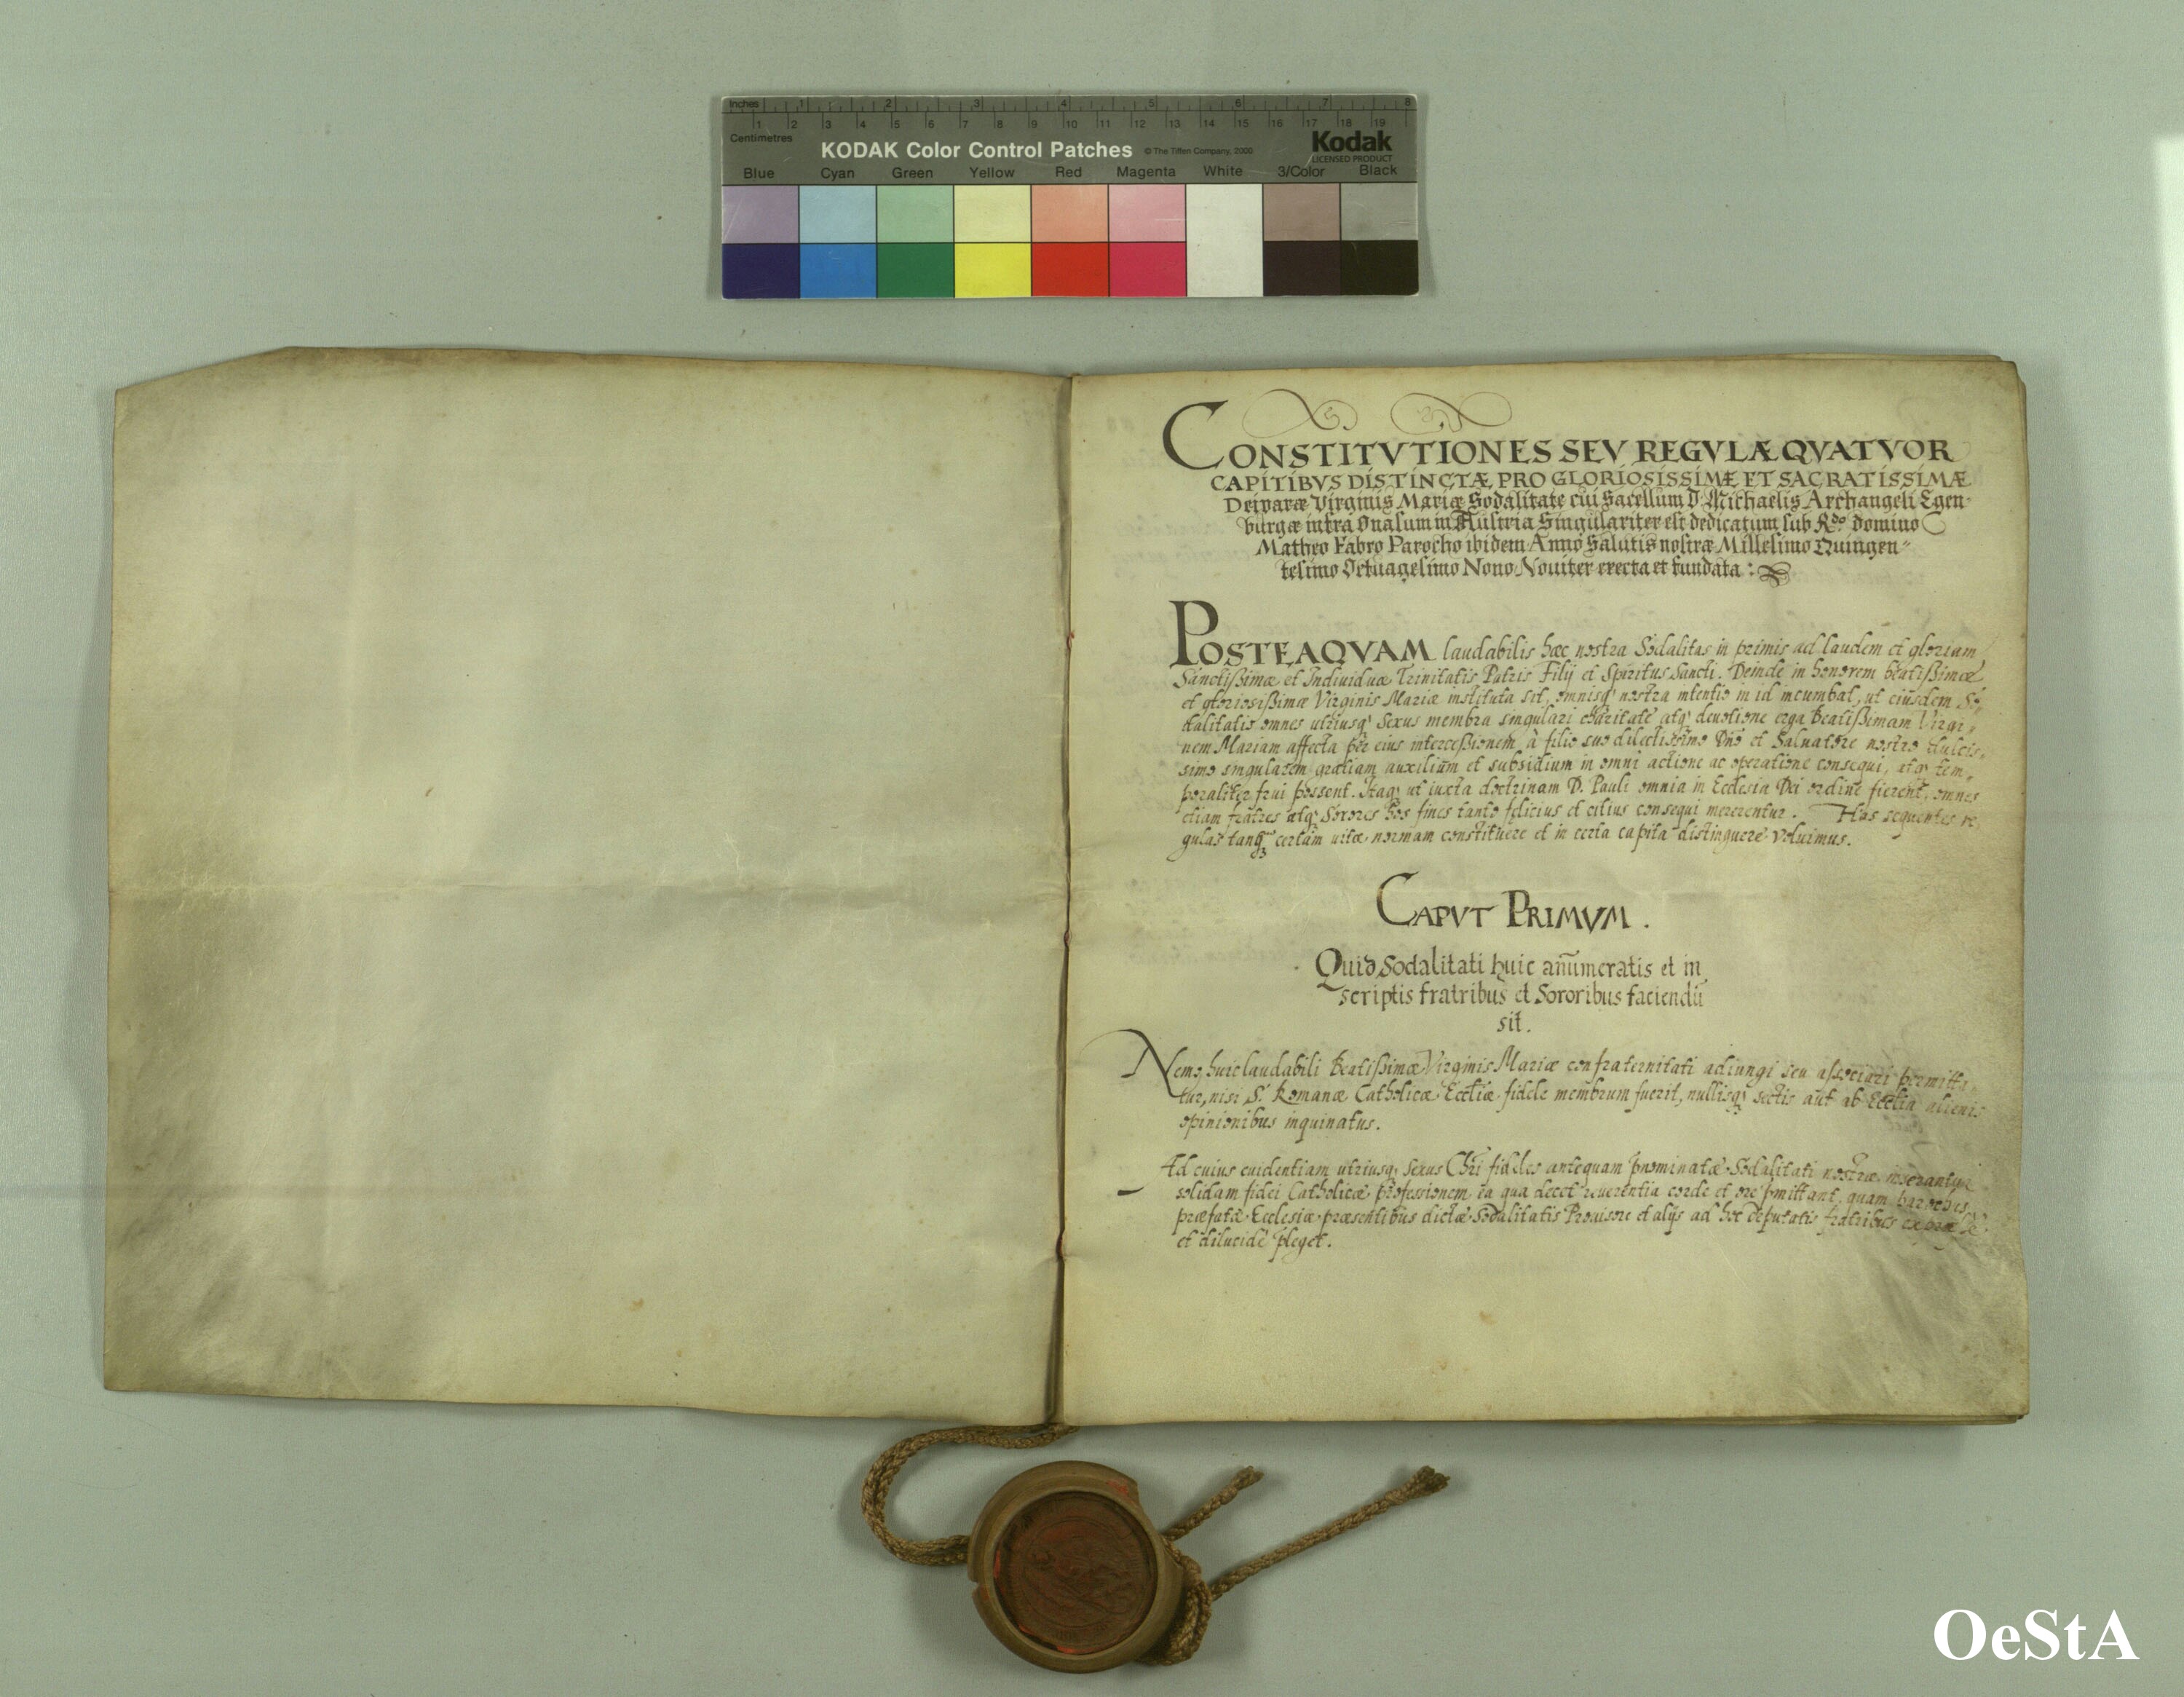 Inches 1 2 3 4 5 6 7 8
1 2 3 4 5 6 7 8 9 10 11 12 13 14 15 16 17 18 19
Centimetres
KODAK Color Control Patches © The Tiffen Company, 2000 Kodak
LICENSED PRODUCT
Blue Cyan Green Yellow Red Magenta White 3/Color Black
CONSTITVTIONES SEV REGVLÆ QVATVOR
CAPITIBVS DISTINCTÆ, PRO GLORIOSISSIMÆ ET SACRATISSIMÆ
Deiparæ Virginis Mariæ Sodalitate cui Sacellum D. Michaelis Archangeli Egen-
burgæ infra Onasum in Austria Singulariter est dedicatum sub Rdo Domino
Matheo Fabro Parocho ibidem Anno Salutis nostræ Millesimo Quingen„
tesimo Octuagesimo Nono Noviter erecta et fundata:
POSTEAQVAM laudabilis hæc nostra Sodalitas in primis ad laudem et gloriam
Sanctißimæ et Individuæ Trinitatis Patris Filij et Spiritus Sancti. Deinde in honorem beatißimæ
et gloriosißimæ Virginis Mariæ instituta sit, omnisq; nostra intentio in id incumbat, ut eiusdem So„
dalitatis omnes utriusq; Sexus membra singulari charitate atq; deuotione erga Beatißimam Virgi„
nem Mariam affecta per eius interceßionem à filio suo dilectissimo Dño et Saluatore nostro dulcis„
simo singularem gratiam auxilium et subsidium in omni actione ac operatione consequi, atq; tem„
poraliter frui possent. Itaq; ut iuxta doctrinam D. Pauli omnia in Ecclesia Dei ordine fierent, omnes
etiam fratres atq; Sorores hos fines tanto felicius et citius consequi mererentur. Has sequentes re„
gulas tanq̃ȝ certam uitæ normam constituere et in certa capita distinguere voluimus.
CAPVT PRIMVM.
Quid Sodalitati huic añumeratis et in
scriptis fratribus et Sororibus faciendũ
sit.
Nemo huic laudabili Beatißimæ Virginis Mariæ confraternitati adiungi seu associari permitta„
tur, nisi S. Romanæ Catholicæ Eccliæ fidele membrum fuerit, nullisq; sectis aut ab Ecclia alienis
opinionibus inquinatus.
Ad cuius euidentiam utriusq; Sexus Chri fideles antequam pnominatæ Sodalitati nostræ inserantur
solidam fidei Catholicæ professionem ea qua decet reuerentia corde et ore pmittant, quam parochus
præfatæ Ecclesiæ præsentibus dictæ Sodalitatis Prouisore et alijs ad hoc deputatis fratribus expresse
et dilucidè pleget.
OeStA